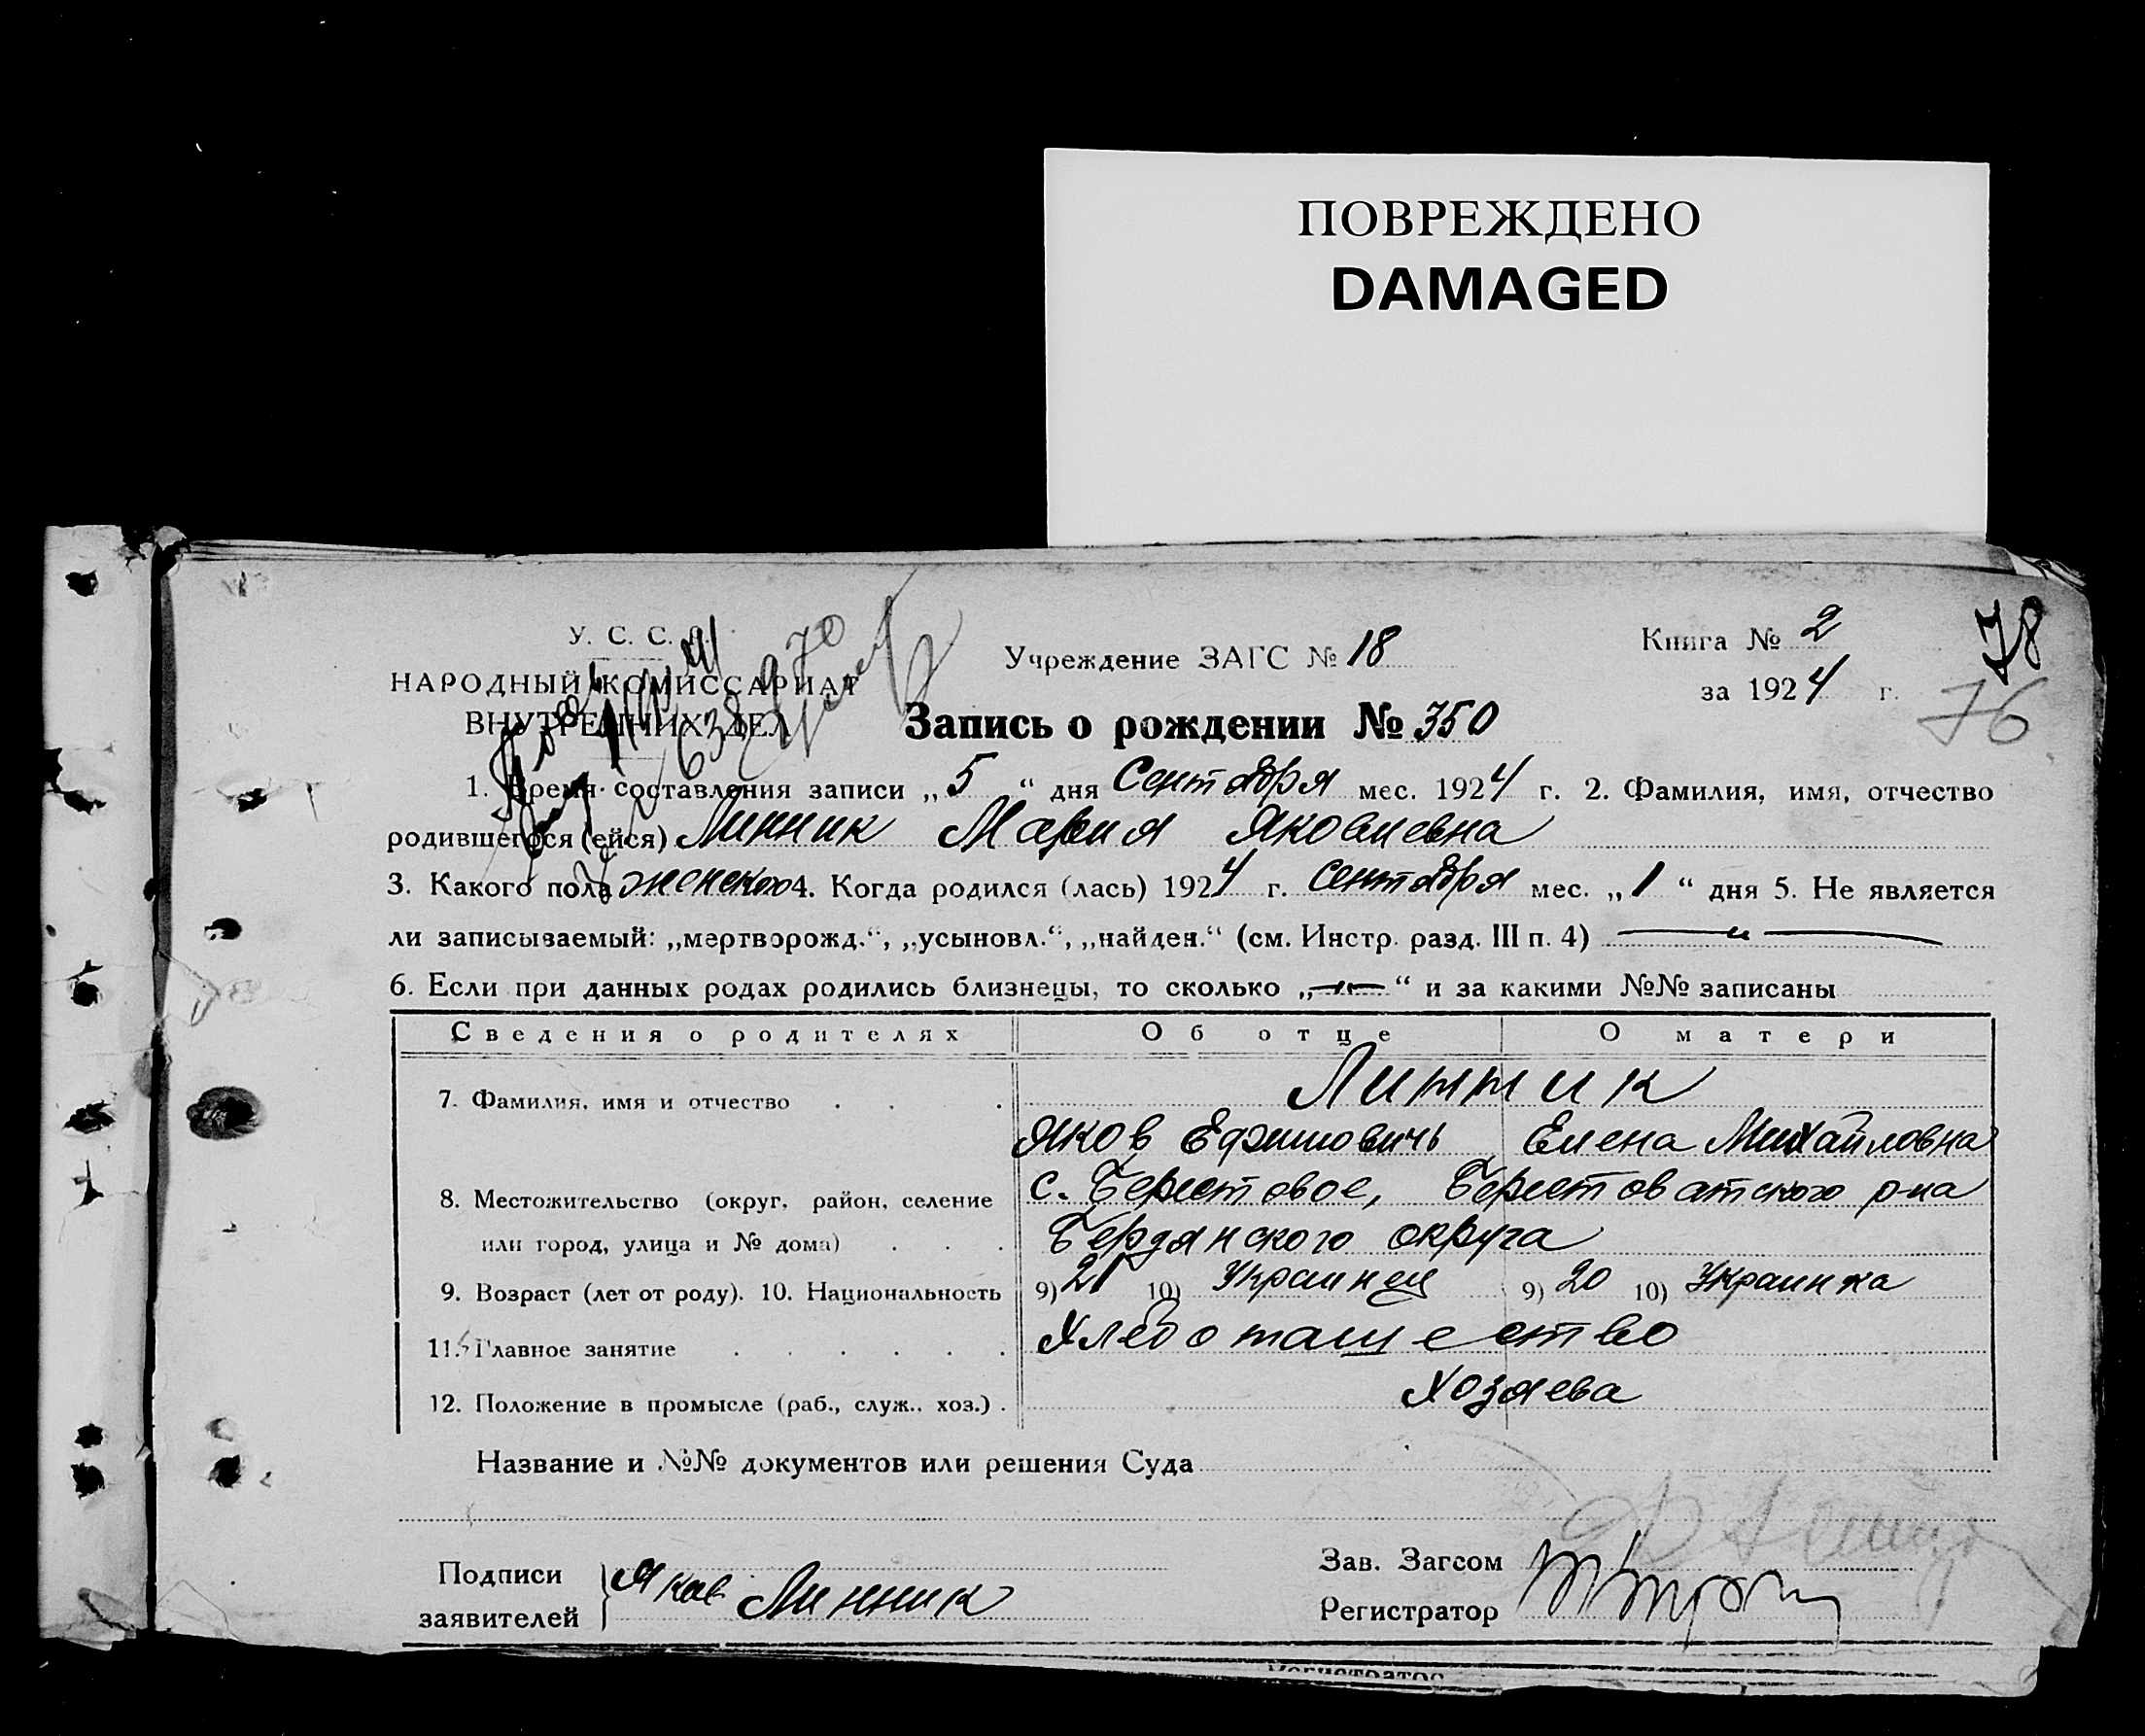 ПОВРЕЖДЕНО
DAMAGED
У. С. С. Р.
НАРОДНЫЙ КОМИССАРИАТ
ВНУТРЕННИХ ДЕЛ
70
Учреждение ЗАГС № 18
Книга № 2
за 1924 г.
78
76
Запись о рождении № 350
1. Время составления записи „5“ дня Сентября мес. 1924 г. 2. Фамилия, имя, отчество
родившегося (ейся) Линник Мария Яковлевна
3. Какого пола женского 4. Когда родился (лась) 1924 г. Сентября мес. „1“ дня 5. Не является
ли записываемый: „мертворожд.“, „усыновл.“, „найден.“ (см. Инстр. разд. III п. 4) — „ —
6. Если при данных родах родились близнецы, то сколько „—„—“ и за какими №№ записаны
Сведения о родителях Об отце О матери
7. Фамилия, имя и отчество Линник
Яков Ефимовичь Елена Михайловна
8. Местожительство (округ, район, селение с. Берестовое, Берестоватского р-на
или город, улица и № дома) Бердянского округа
9. Возраст (лет от роду). 10. Национальность 9) 21 10) Украинец 9) 20 10) Украинка
11. Главное занятие Хлебопашество
12. Положение в промысле (раб., служ., хоз.) Хозяева
Название и №№ документов или решения Суда
Подписи заявителей Яков Линник
Зав. Загсом
Регистратор
Регистратор